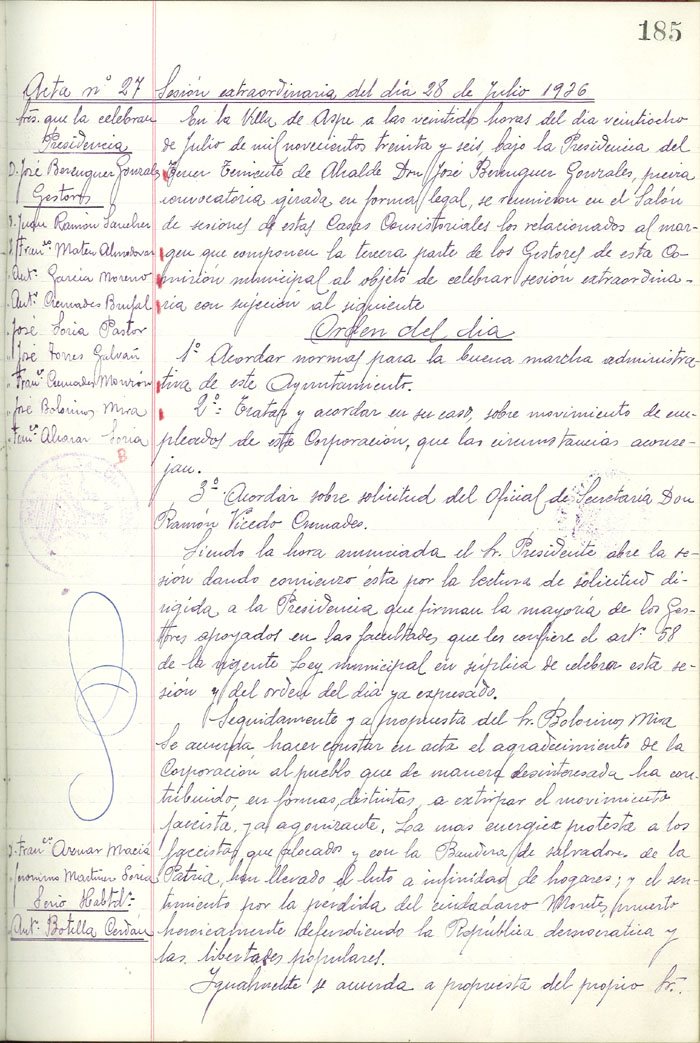 185
Acta nº 27 Sesión extraordinaria del día 28 de Julio 1936
tres. que la celebran
Presidencia
D. José Berenguer Gonzales
Gestores
D. Juan Ramón Sanchez
D. Franco. Mateu Almodovar
" Anto. García Moreno
" Anto. Cremades Brufal
" José Soria Pastor
" José Torres Galván
" Franco. Cremades Monzón
" José Bolorinos Mira
" Franco. Alcaraz Soria
B
En la Villa de Aspe a las veintidos horas del dia veintiocho
de Julio de mil novecientos treinta y seis, bajo la Presidencia del
Tercer Teniente de Alcalde Don José Berenguer Gonzales, previa
convocatoria girada en forma legal, se reunieron en el Salón
de sesiones de estas Casas Consistoriales los relacionados al mar-
gen que componen la tercera parte de los Gestores de esta Co-
misión municipal al objeto de celebrar sesión extraordina-
ria con sujeción al siguiente
Orden del dia
1º Acordar normas para la buena marcha administra-
tiva de este Ayuntamiento.
2º: Tratar y acordar en su caso, sobre movimiento de em-
pleados de esta Corporación, que las circunstancias aconse-
jan.
3º Acordar sobre solicitud del Oficial de Secretaría Don
Ramón Vicedo Cremades.
Siendo la hora anunciada el Sr. Presidente abre la se-
sión dando comienzo ésta por la lectura de solicitud di-
rigida a la Presidencia que firman la mayoría de los Ges-
tores apoyados en las facultades que les confiere el arto. 58
de la vigente Ley municipal en súplica de celebrar esta se-
sión y del orden del dia ya expresado.
Seguidamente y a propuesta del Sr. Bolorinos Mira
se acuerda hacer constar en acta el agradecimiento de la
Corporación al pueblo que de manera desinteresada ha con-
tribuido, en formas distintas, a extirpar el movimiento
fascista, ya agonizante. La mas energica protesta a los
faccistas que alocados y con la Bandera de salvadores de la
Patria, han llevado el luto a infinidad de hogares; y el sen-
timiento por la pérdida del ciudadano Montes, muerto
heroicamente defendiendo la República democratica y
las libertades populares.
Igualmente se acuerda a propuesta del propio Sr.
D. Franco. Aznar Maciá
" Jeronimo Martinez Soria
Serio Habtdo:
Anto. Botella Cerdán